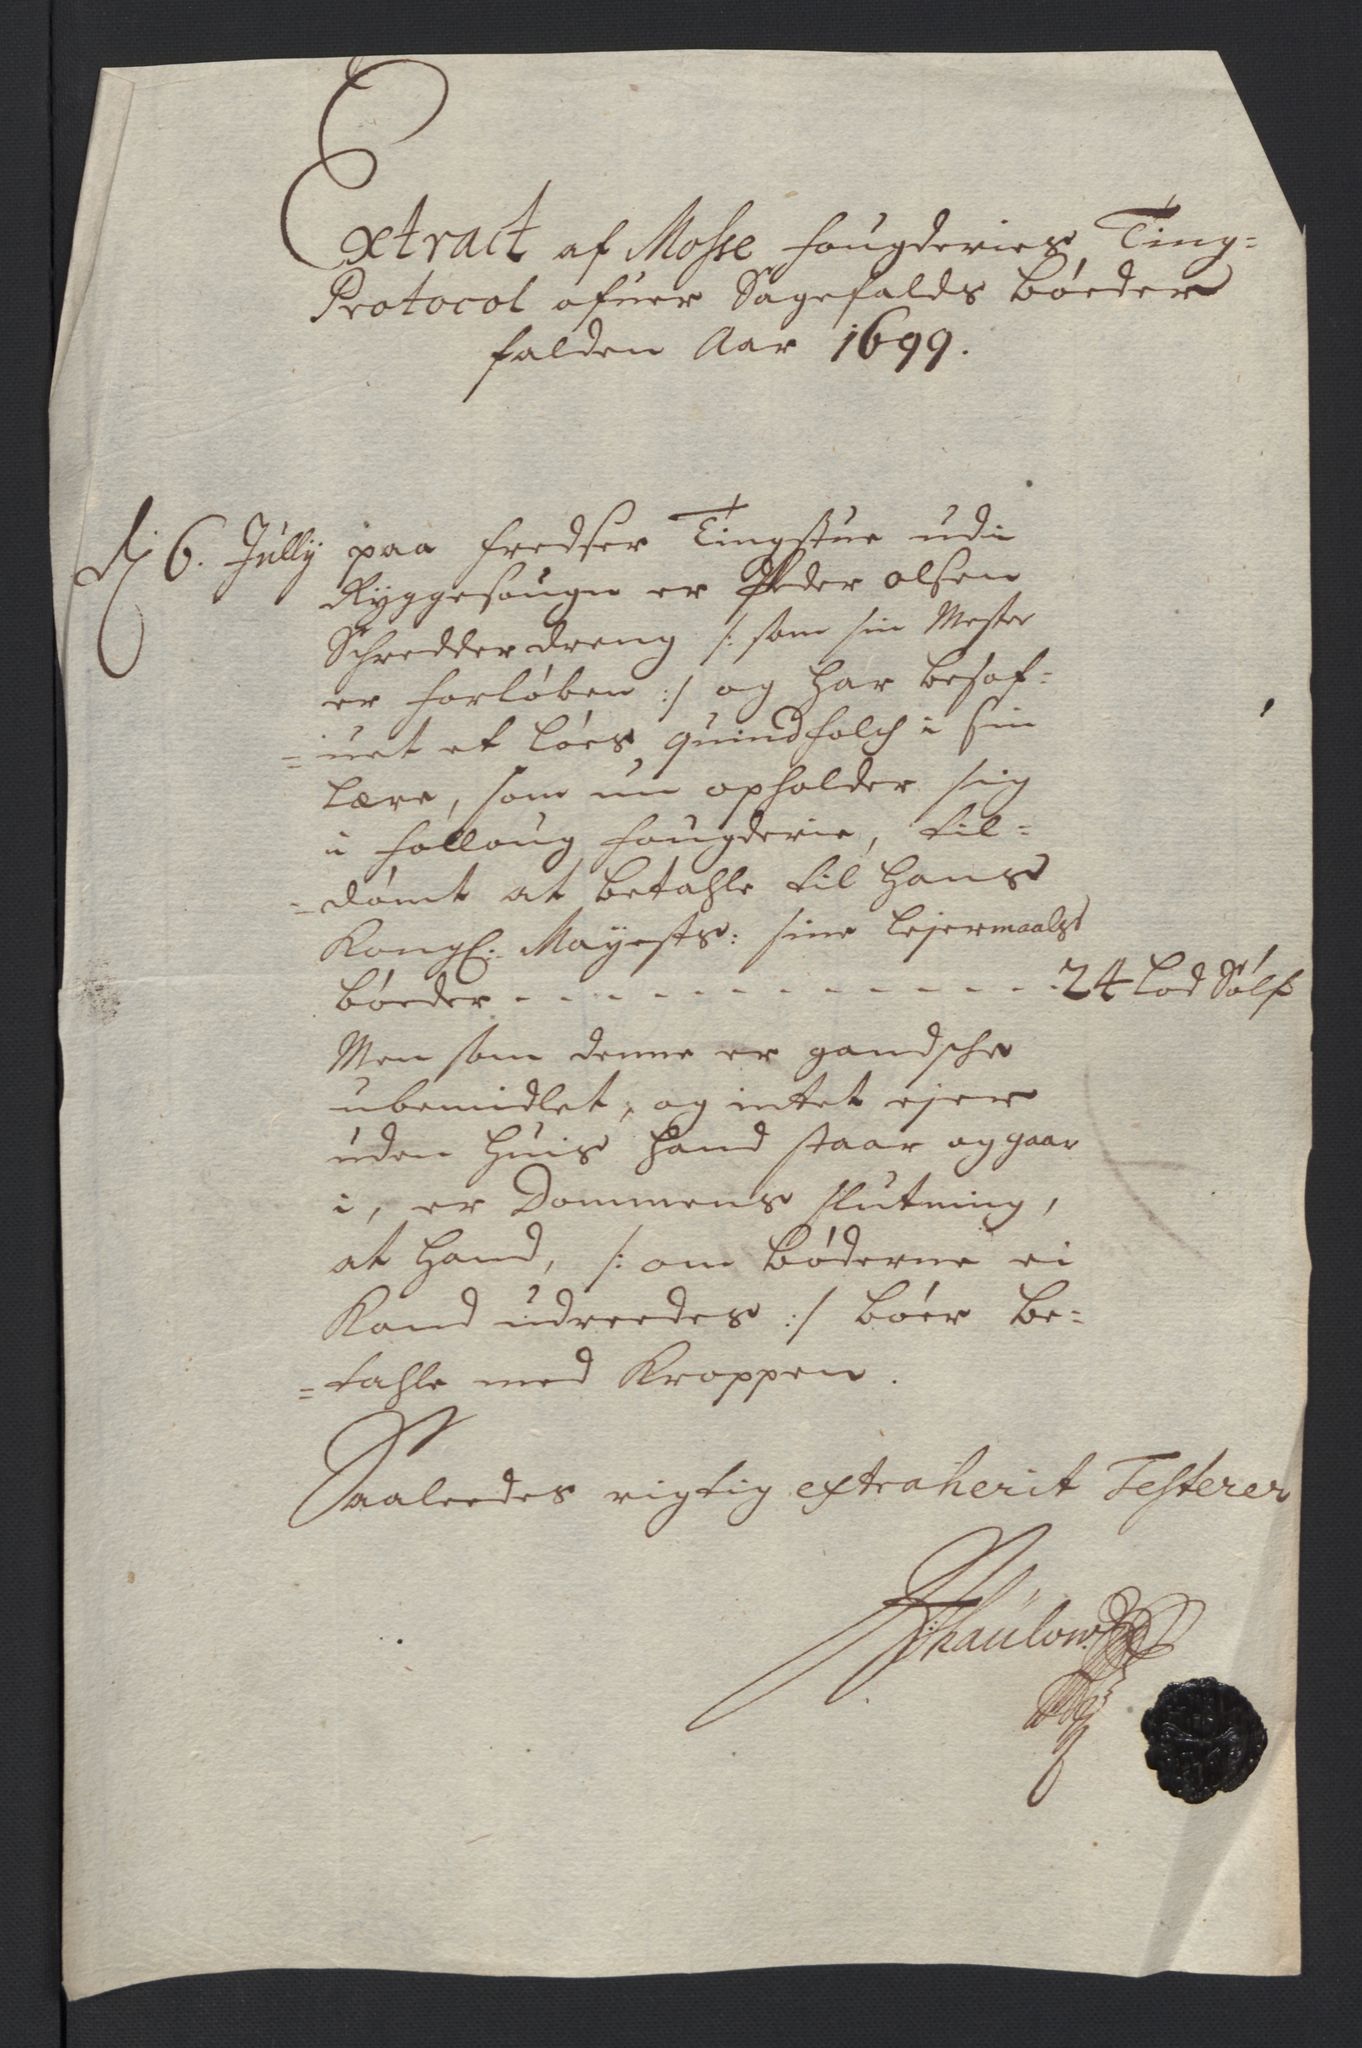 Extract af Mosse fougderies Ting=
Protocol ofuer Sagefalds bøeder
falden Aar 1699.
d. 6. Jully paa Fredser Tingstue udi
Ryggesougn er Peder olsen
Schredder dreng /: som sin Mester
er forløben :/ og har besof=
=uet et løes quindfolch i sin
lære, som nu opholder sig
i folloug fougderie, til=
=dømt at betahle til Hans
Kongl: Mayests: sine leiermaals
bøeder - - - - - - - - - - - - - 24 lod Sølf
Men som denne er gandsche
ubemidlet, og intet ejer
uden huis hand staar og gaar
i, er Dommens slutning,
at hand, /: om bøderne ei
Kand udreedes :/ bøer be=
=tahle med Kroppen.
Saaleedes rigtig extraherit Testerer
Thaulow